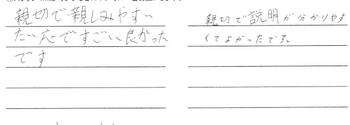 親切で親しみやすい
たい応ですごい良かった
です
親切で説明が分かりやす
くてよかったです。